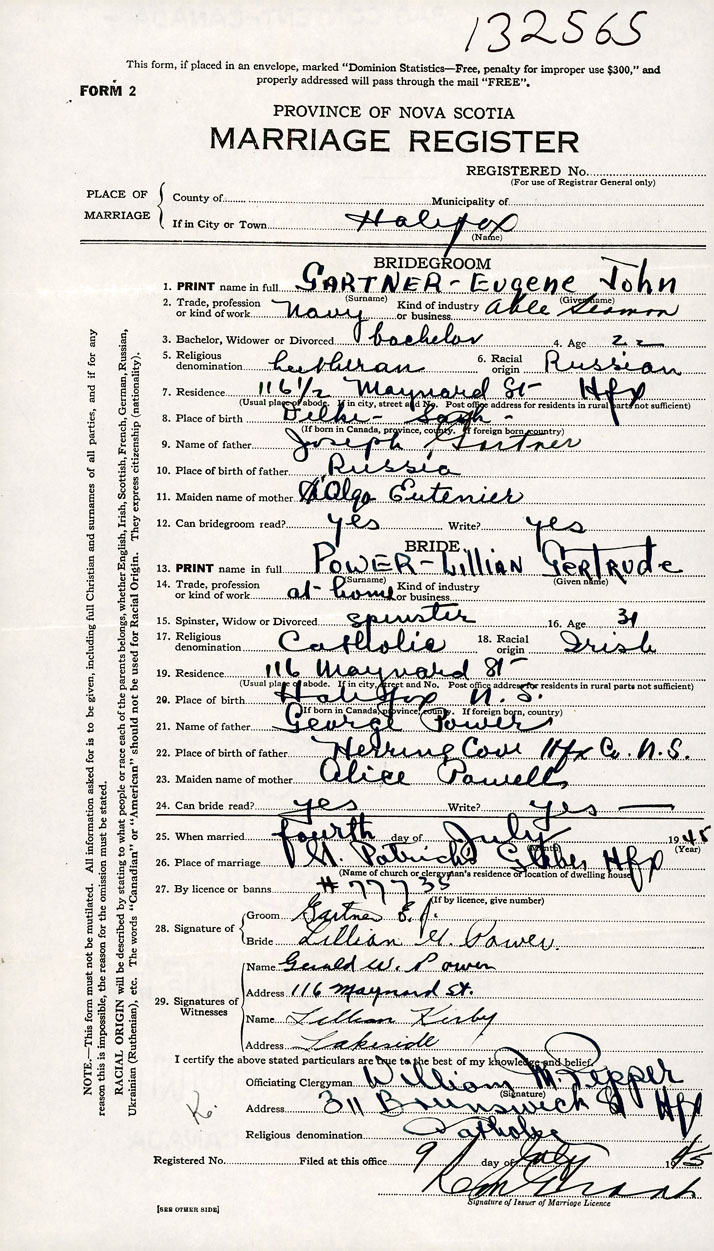 132565
This form, if placed in an envelope, marked "Dominion Statistics—Free, penalty for improper use $300," and
properly addressed will pass through the mail "FREE".
FORM 2
PROVINCE OF NOVA SCOTIA
MARRIAGE REGISTER
REGISTERED No.
(For use of Registrar General only)
PLACE OF MARRIAGE
County of Municipality of
If in City or Town Halifax
(Name)
BRIDEGROOM
1. PRINT name in full GARTNER - Eugene John
(Surname) (Given name)
2. Trade, profession or kind of work Navy Kind of industry or business Able Seaman
3. Bachelor, Widower or Divorced bachelor 4. Age 22
5. Religious denomination Lutheran 6. Racial origin Russian
7. Residence 116 1/2 Maynard St - Hfx
(Usual place of abode. If in city, street and No. Post office address for residents in rural parts not sufficient)
8. Place of birth Dilke - Sask -
(If born in Canada, province, county. If foreign born, country)
9. Name of father Joseph Gartner
10. Place of birth of father Russia
11. Maiden name of mother Olga Eutenier
12. Can bridegroom read? yes Write? yes
BRIDE
13. PRINT name in full POWER - Lillian Gertrude
(Surname) (Given name)
14. Trade, profession or kind of work at home Kind of industry or business
15. Spinster, Widow or Divorced spinster 16. Age 31
17. Religious denomination Catholic 18. Racial origin Irish
19. Residence 116 Maynard St -
(Usual place of abode. If in city, street and No. Post office address for residents in rural parts not sufficient)
20. Place of birth Halifax N. S.
(If born in Canada, province, county. If foreign born, country)
21. Name of father George Power
22. Place of birth of father Herring Cove Hfx Co. N.S.
23. Maiden name of mother Alice Powell
24. Can bride read? yes Write? yes —
25. When married fourth day of July 1945
(Month) (Year)
26. Place of marriage St. Patrick's Glebe Hfx
(Name of church or clergyman's residence or location of dwelling house)
27. By licence or banns # 77735
(If by licence, give number)
28. Signature of
Groom Gartner E. J.
Bride Lillian G. Power.
29. Signatures of Witnesses
Name Gerald W. Power
Address 116 Maynard St.
Name Lillian Kirby
Address Lakeside
I certify the above stated particulars are true to the best of my knowledge and belief.
Officiating Clergyman William M. Pepper
(Signature)
Address 311 Brunswick St Hfx
Religious denomination Catholic
Registered No. Filed at this office 9 day of July 1945
Signature of Issuer of Marriage Licence
[SEE OTHER SIDE]
NOTE.—This form must not be mutilated. All information asked for is to be given, including full Christian and surnames of all parties, and if for any
reason this is impossible, the reason for the omission must be stated.
RACIAL ORIGIN will be described by stating to what people or race each of the parents belongs, whether English, Irish, Scottish, French, German, Russian,
Ukrainian (Ruthenian), etc. The words "Canadian" or "American" should not be used for Racial Origin. They express citizenship (nationality).